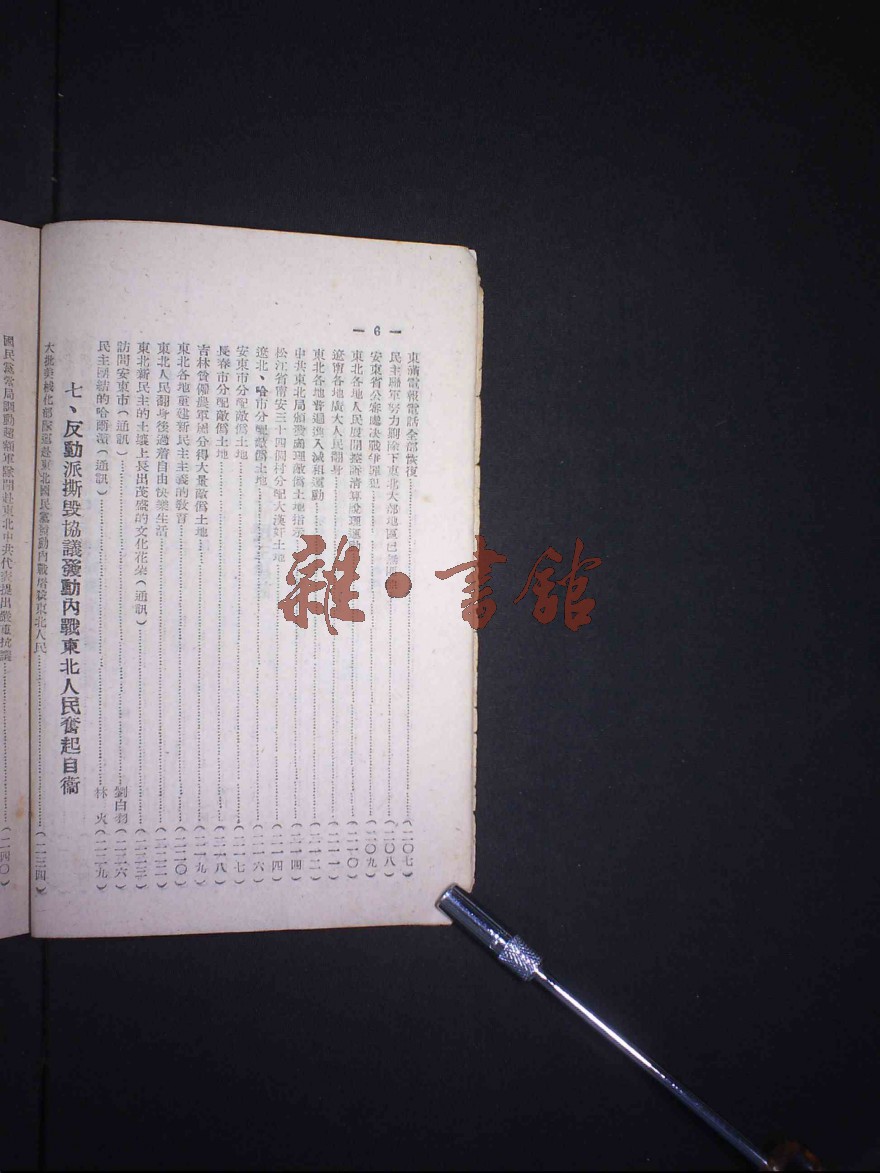 — 6 —
東滿電報電話全部恢復……(二〇七)
民主聯軍努力剿除下東北大部地區已無匪(二〇八)
安東省公審處決戰爭罪犯……(二〇九)
東北各地人民展開控訴清算說理運動(二一〇)
遼南各地廣大人民翻身……(二一一)
東北各地普遍進入減租運動……(二一二)
中共東北局頒發處理敵僞土地指示(二一四)
松江省賓安三十四個村分配大漢奸土地……(二一四)
遼北、哈市分配敵僞土地……(二一六)
安東市分配敵僞土地……(二一七)
長春市分配敵僞土地……(二一八)
吉林貧僱農軍屬分得大量敵僞土地……(二一九)
東北各地重建新民主主義的教育……(二二〇)
東北人民翻身後過着自由快樂生活……(二二二)
東北新民主的土壤上長出茂盛的文化花朵(通訊)……(二二三)
訪問安東市(通訊)……劉白羽(二二六)
民主團結的哈爾濱(通訊)……林 火(二二九)
七、反動派撕毀協議發動內戰東北人民奮起自衛
大批美械化部隊運赴東北國民黨發動內戰屠殺東北人民……(二三四)
國民黨當局調動超額軍隊開赴東北中共代表提出嚴重抗議……(二四〇)
雜·書館